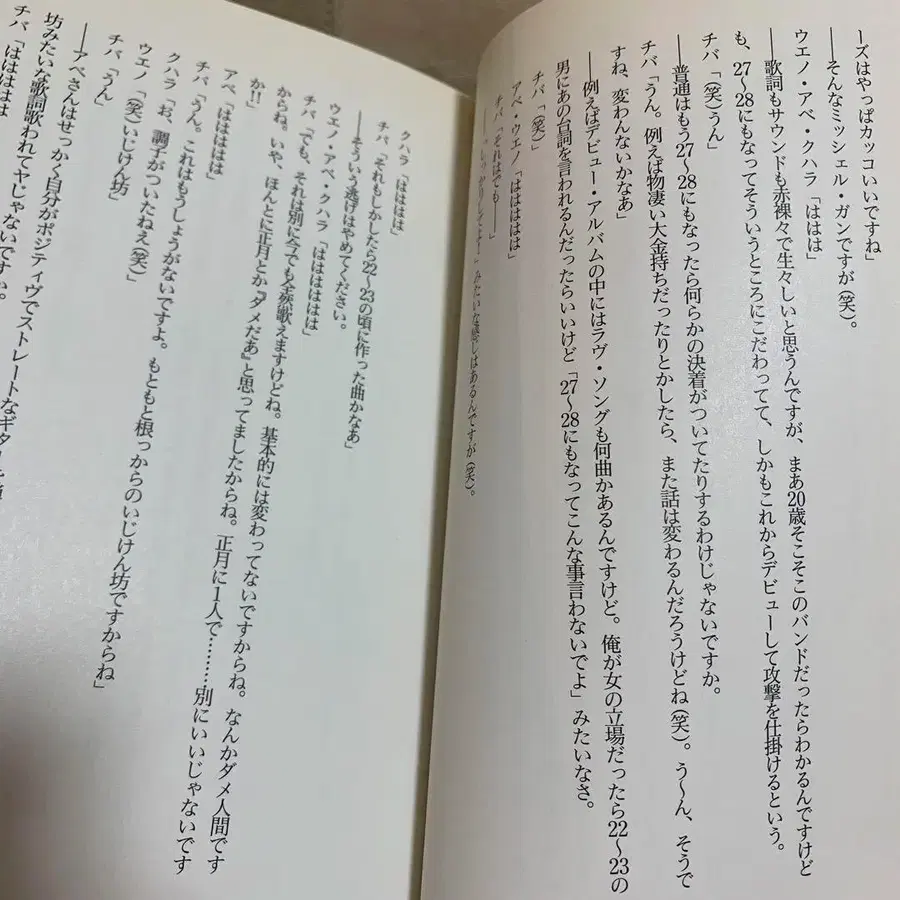 ーズはやっぱカッコいいですね」
――そんなミッシェル・ガンですが(笑)。
ウエノ・アベ・クハラ「ははは」
――歌詞もサウンドも赤裸々で生々しいと思うんですが、まあ20歳そこそこのバンドだったらわかるんですけど
も、27〜28にもなってそういうところにこだわってて、しかもこれからデビューして攻撃を仕掛けるという。
チバ「(笑)うん」
――普通はもう27〜28にもなったら何らかの決着がついてたりするわけじゃないですか。
チバ「うん。例えば物凄い大金持ちだったりとかしたら、また話は変わるんだろうけどね(笑)。う〜ん、そうで
すね、変わんないかなあ」
――例えばデビュー・アルバムの中にはラヴ・ソングも何曲かあるんですけど。俺が女の立場だったら22〜23の
男にあの台詞を言われるんだったらいいけど「27〜28にもなってこんな事言わないでよ」みたいなさ。
チバ「(笑)」
アベ・ウエノ「はははは」
チバ「それはでも――」
みたいな感じはあるんですが(笑)。
クハラ「はははは」
チバ「それもしかしたら22〜23の頃に作った曲かなあ」
――そういう逃げはやめてください。
ウエノ・アベ・クハラ「はははははは」
チバ「でも、それは別に今でも全然歌えますけどね。基本的には変わってないですからね。なんかダメ人間です
からね。いや、ほんとに正月とか『ダメだあ』と思ってましたからね。正月に1人で………別にいいじゃないです
か!!」
アベ「ははははは」
チバ「うん。これはもうしょうがないですよ。もともと根っからのいじけん坊ですからね」
クハラ「お、調子がついたねえ(笑)」
ウエノ「(笑)いじけん坊」
チバ「うん」
――アベさんはせっかく自分がポジティヴでストレートなギター
坊みたいな歌詞歌われてヤじゃないですか。
チバ「ははははは